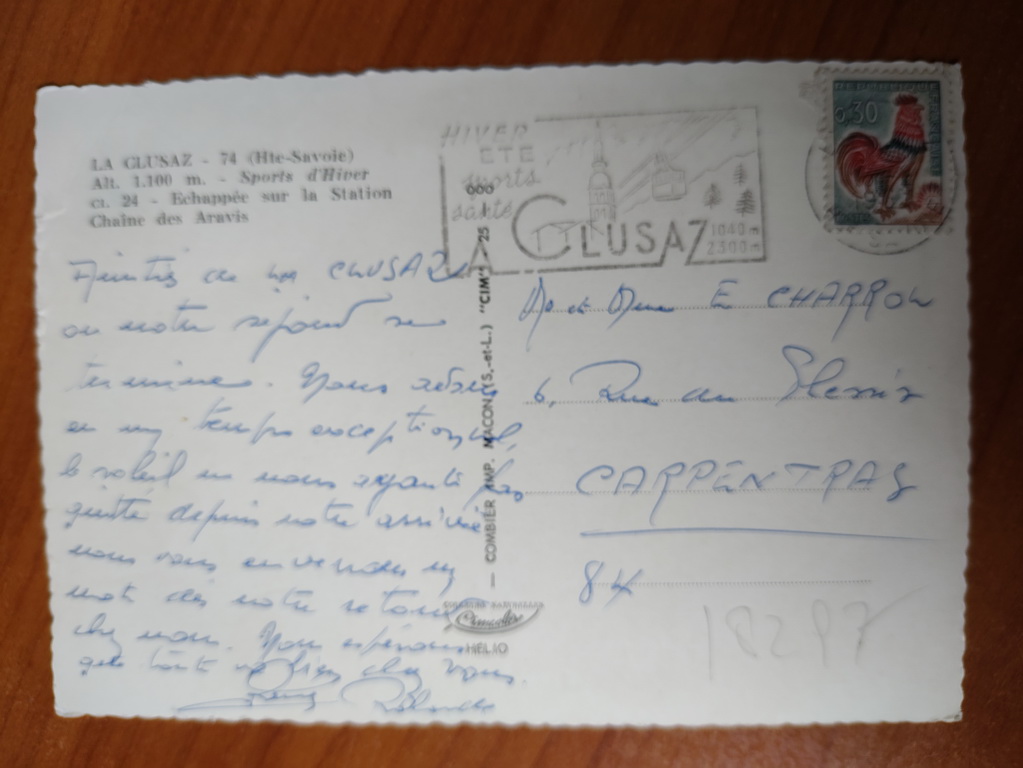 LA CLUSAZ - 74 (Hte-Savoie)
Alt. 1.100 m. - Sports d'Hiver
ct. 24 - Echappée sur la Station
Chaîne des Aravis
HIVER
ETE
sports
santé
LA CLUSAZ
1040 m
2300 m
0,30
de La CLUSAZ
ou notre séjour se
termine. Nous avons
eu un temps exceptionnel,
le soleil ne nous ayant pas
quitté depuis notre arrivée
nous vous enverrons un
mot dès notre retour
chez nous. Nous espérons
que tout va bien chez vous.
COMBIER IMP. MACON (S.-et-L.) "CIM"
HELIO
M et Mme E CHARRON
6, Rue du Plessis
CARPENTRAS
84
18297